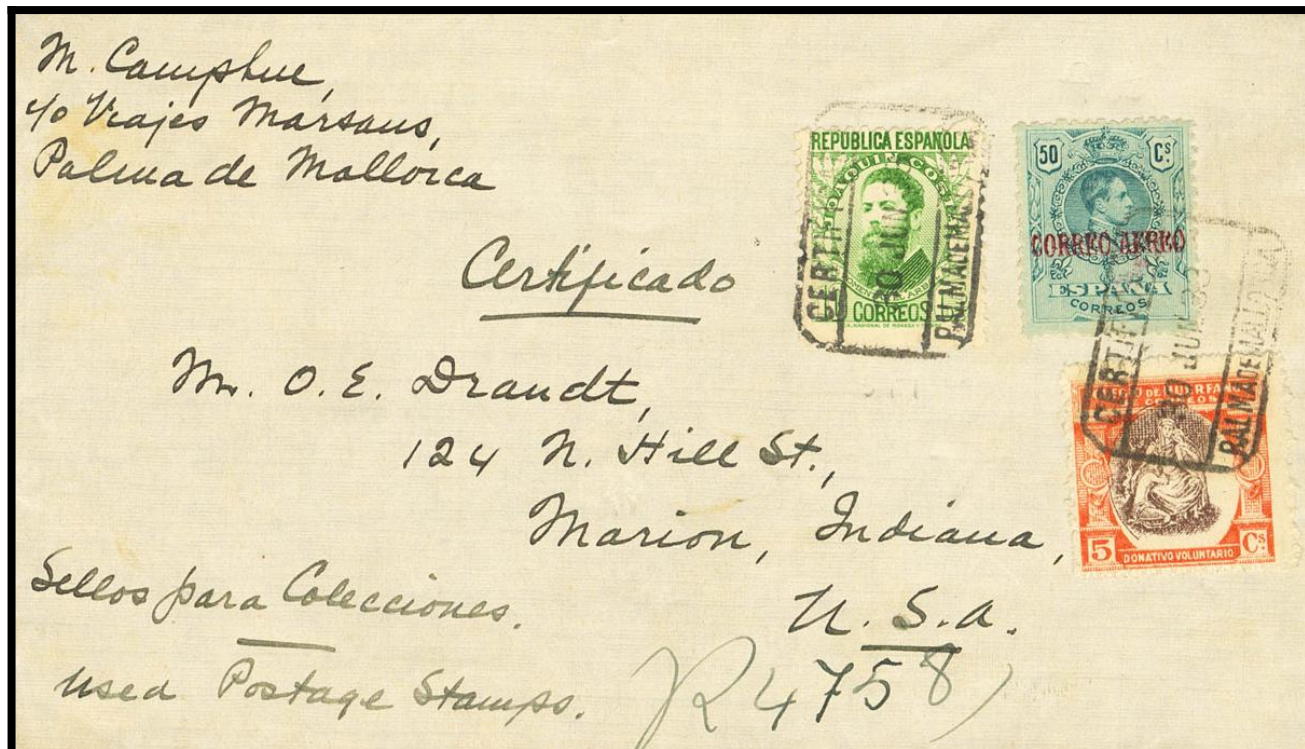 M. Camphue,
c/o Viajes Marsans,
Palma de Mallorca
Certificado
Mr. O. E. Drandt,
124 N. Hill St.,
Marion, Indiana,
U. S. A.
Sellos para Colecciones.
Used Postage Stamps.
R 4758
REPÚBLICA ESPAÑOLA
JOAQUIN COSTA
CORREOS
CERTIF
30 JUN
PALMA DE MALL
50 Cs
CORREO AEREO
ESPAÑA
CORREOS
CERTIF
30 JUN 33
PALMA DE MALLORCA
DE HUERFA
CORREOS
5 DONATIVO VOLUNTARIO Cs